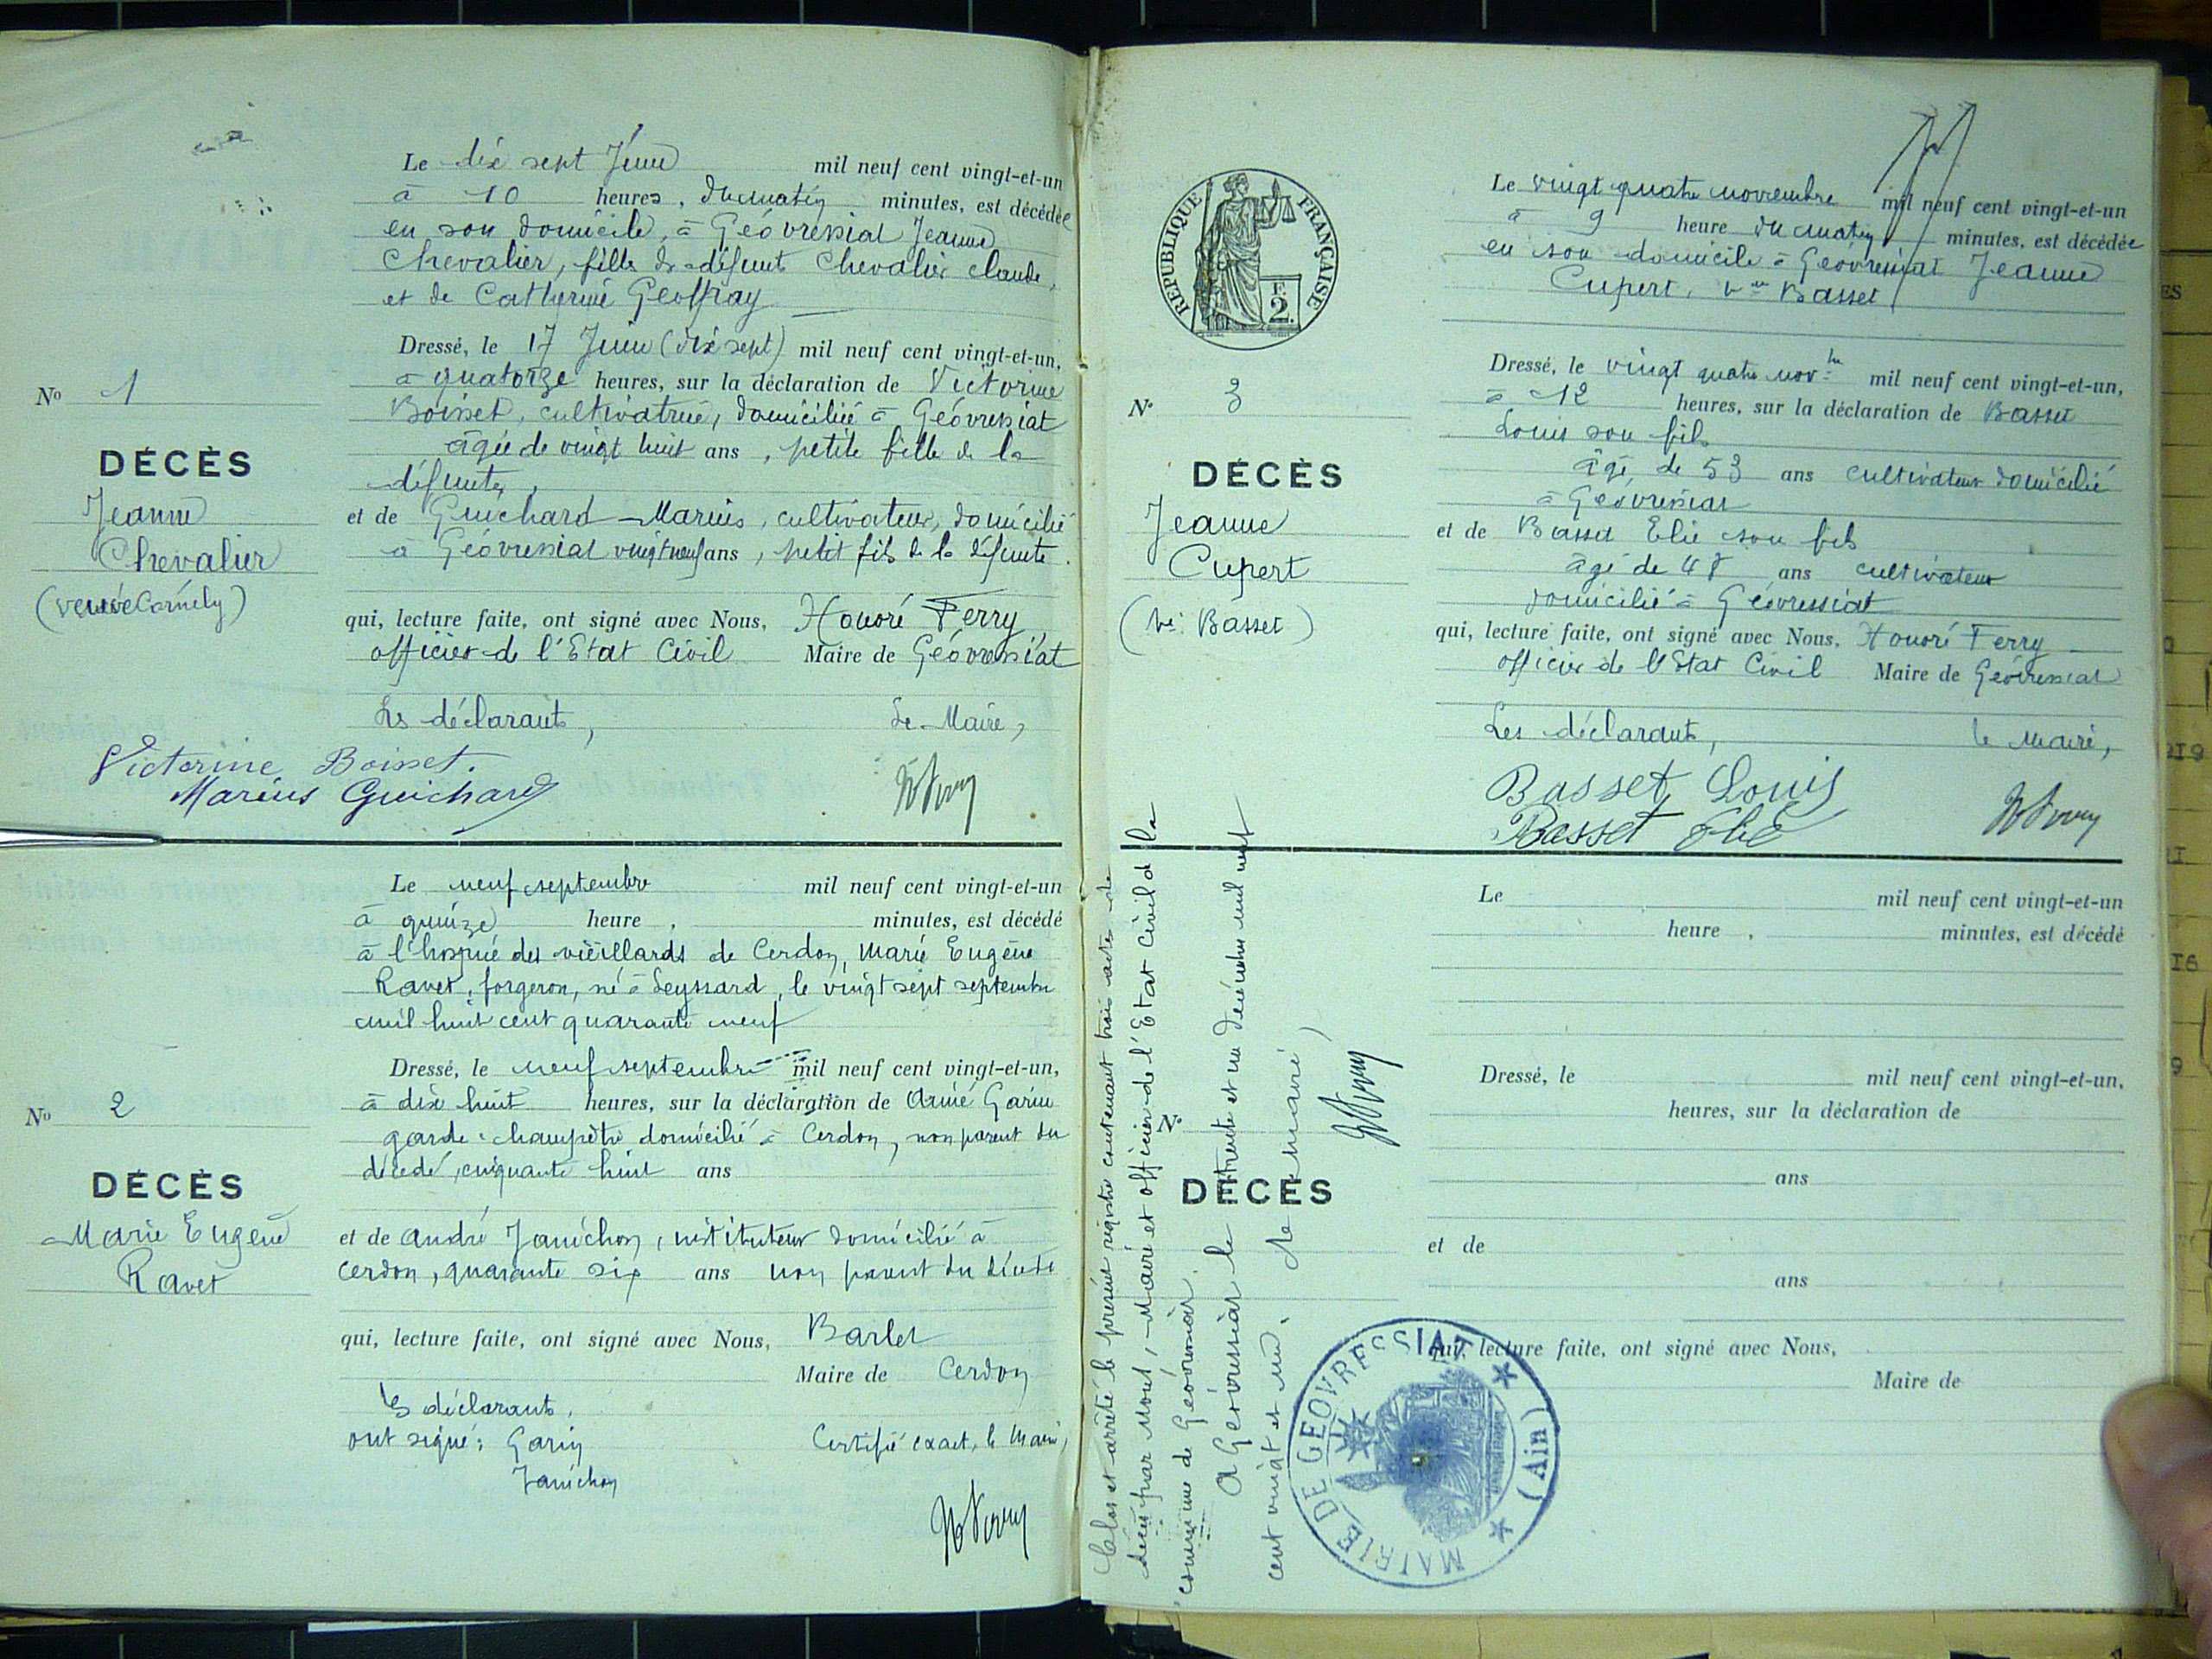 Le dix sept Juin mil neuf cent vingt-et-un
à 10 heures, du matin minutes, est décédée
en son domicile, à Géovressiat Jeanne
Chevalier, fille de défunt Chevalier Claude,
et de Catherine Geoffray
Dressé, le 17 Juin (dix sept) mil neuf cent vingt-et-un,
à quatorze heures, sur la déclaration de Victorine
Boisset, cultivatrice, domiciliée à Géovressiat
âgée de vingt huit ans, petite fille de la
défunte,
et de Guichard Marius, cultivateur, domicilié
à Géovressiat vingt neuf ans, petit fils de la défunte.
qui, lecture faite, ont signé avec Nous, Honoré Ferry
officier de l'Etat Civil Maire de Géovressiat
Les déclarants, Le Maire,
Victorine Boisset.
Marius Guichard
HFerry
No 1
DÉCÈS
Jeanne
Chevalier
(veuve Carnely)
Le neuf septembre mil neuf cent vingt-et-un
à quinze heure, minutes, est décédé
à l'hospice des vieillards de Cerdon, Marie Eugène
Ravet, forgeron, né à Leyssard, le vingt sept septembre
mil huit cent quarante neuf
Dressé, le neuf septembre mil neuf cent vingt-et-un,
à dix huit heures, sur la déclaration de Aimé Garin
garde-champêtre domicilié à Cerdon, non parent du
décédé, cinquante huit ans
et de André Janichon, instituteur domicilié à
Cerdon, quarante six ans non parent du
qui, lecture faite, ont signé avec Nous, Barlet
Maire de Cerdon
Les déclarants,
ont signé: Garin Certifié exact, le Maire,
Janichon
HFerry
No 2
DÉCÈS
Marie Eugène
Ravet
RÉPUBLIQUE FRANÇAISE
F. 2.
Le vingt quatre novembre mil neuf cent vingt-et-un
à 9 heure du matin minutes, est décédée
en son domicile à Géovressiat Jeanne
Cupert, vve Basset
Dressé, le vingt quatre novbre mil neuf cent vingt-et-un,
à 12 heures, sur la déclaration de Basset
Louis son fils
âgé de 53 ans cultivateur domicilié
à Géovressiat
et de Basset Elie son fils
âgé de 48 ans cultivateur
domicilié à Géovressiat
qui, lecture faite, ont signé avec Nous, Honoré Ferry
officier de l'Etat Civil Maire de Géovressiat
Les déclarants, le Maire,
Basset Louis
Basset Elie
HFerry
No 3
DÉCÈS
Jeanne
Cupert
(ve Basset)
Le mil neuf cent vingt-et-un
heure, minutes, est décédé
Dressé, le mil neuf cent vingt-et-un,
heures, sur la déclaration de
ans
et de
ans
qui, lecture faite, ont signé avec Nous,
Maire de
No
DÉCÈS
Clos et arrêté le présent registre contenant trois actes de
décès par Nous, Maire et officier de l'Etat Civil de la
commune de Géovressiat.
A Géovressiat le trente et un décembre mil neuf
cent vingt et un. Le Maire,
HFerry
MAIRIE DE GEOVRESSIAT (Ain)